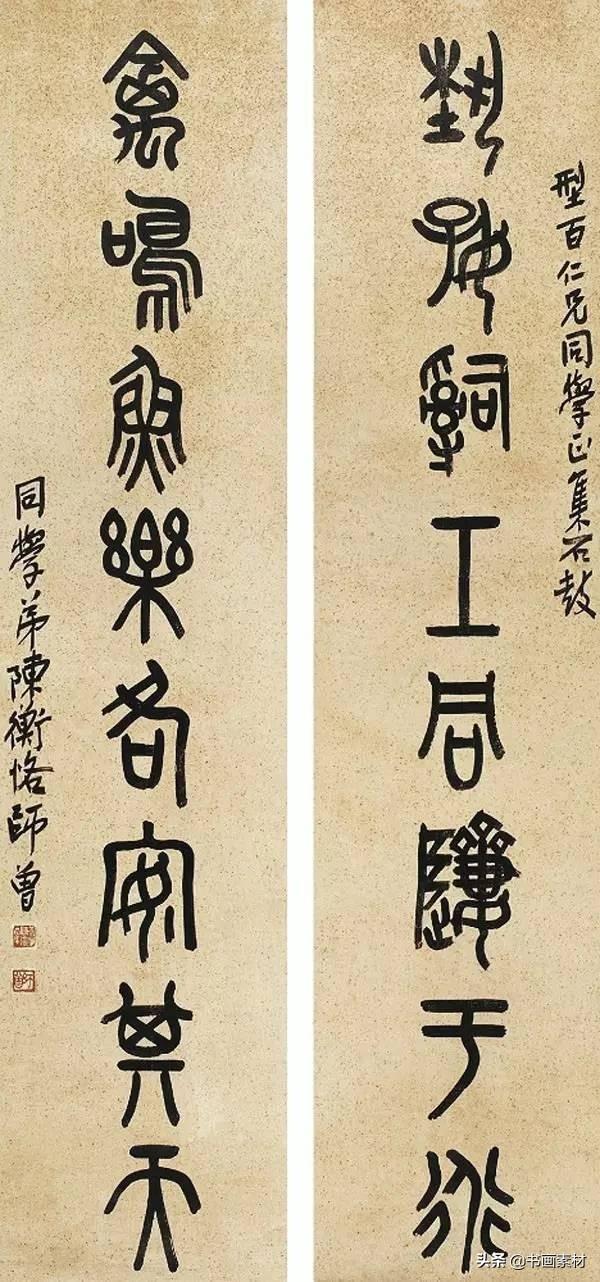 型百仁兄同學正集石鼓
埶好工同于
禽鳴魚樂各安其天
同學弟陳衡恪師曾
头条 @书画素材